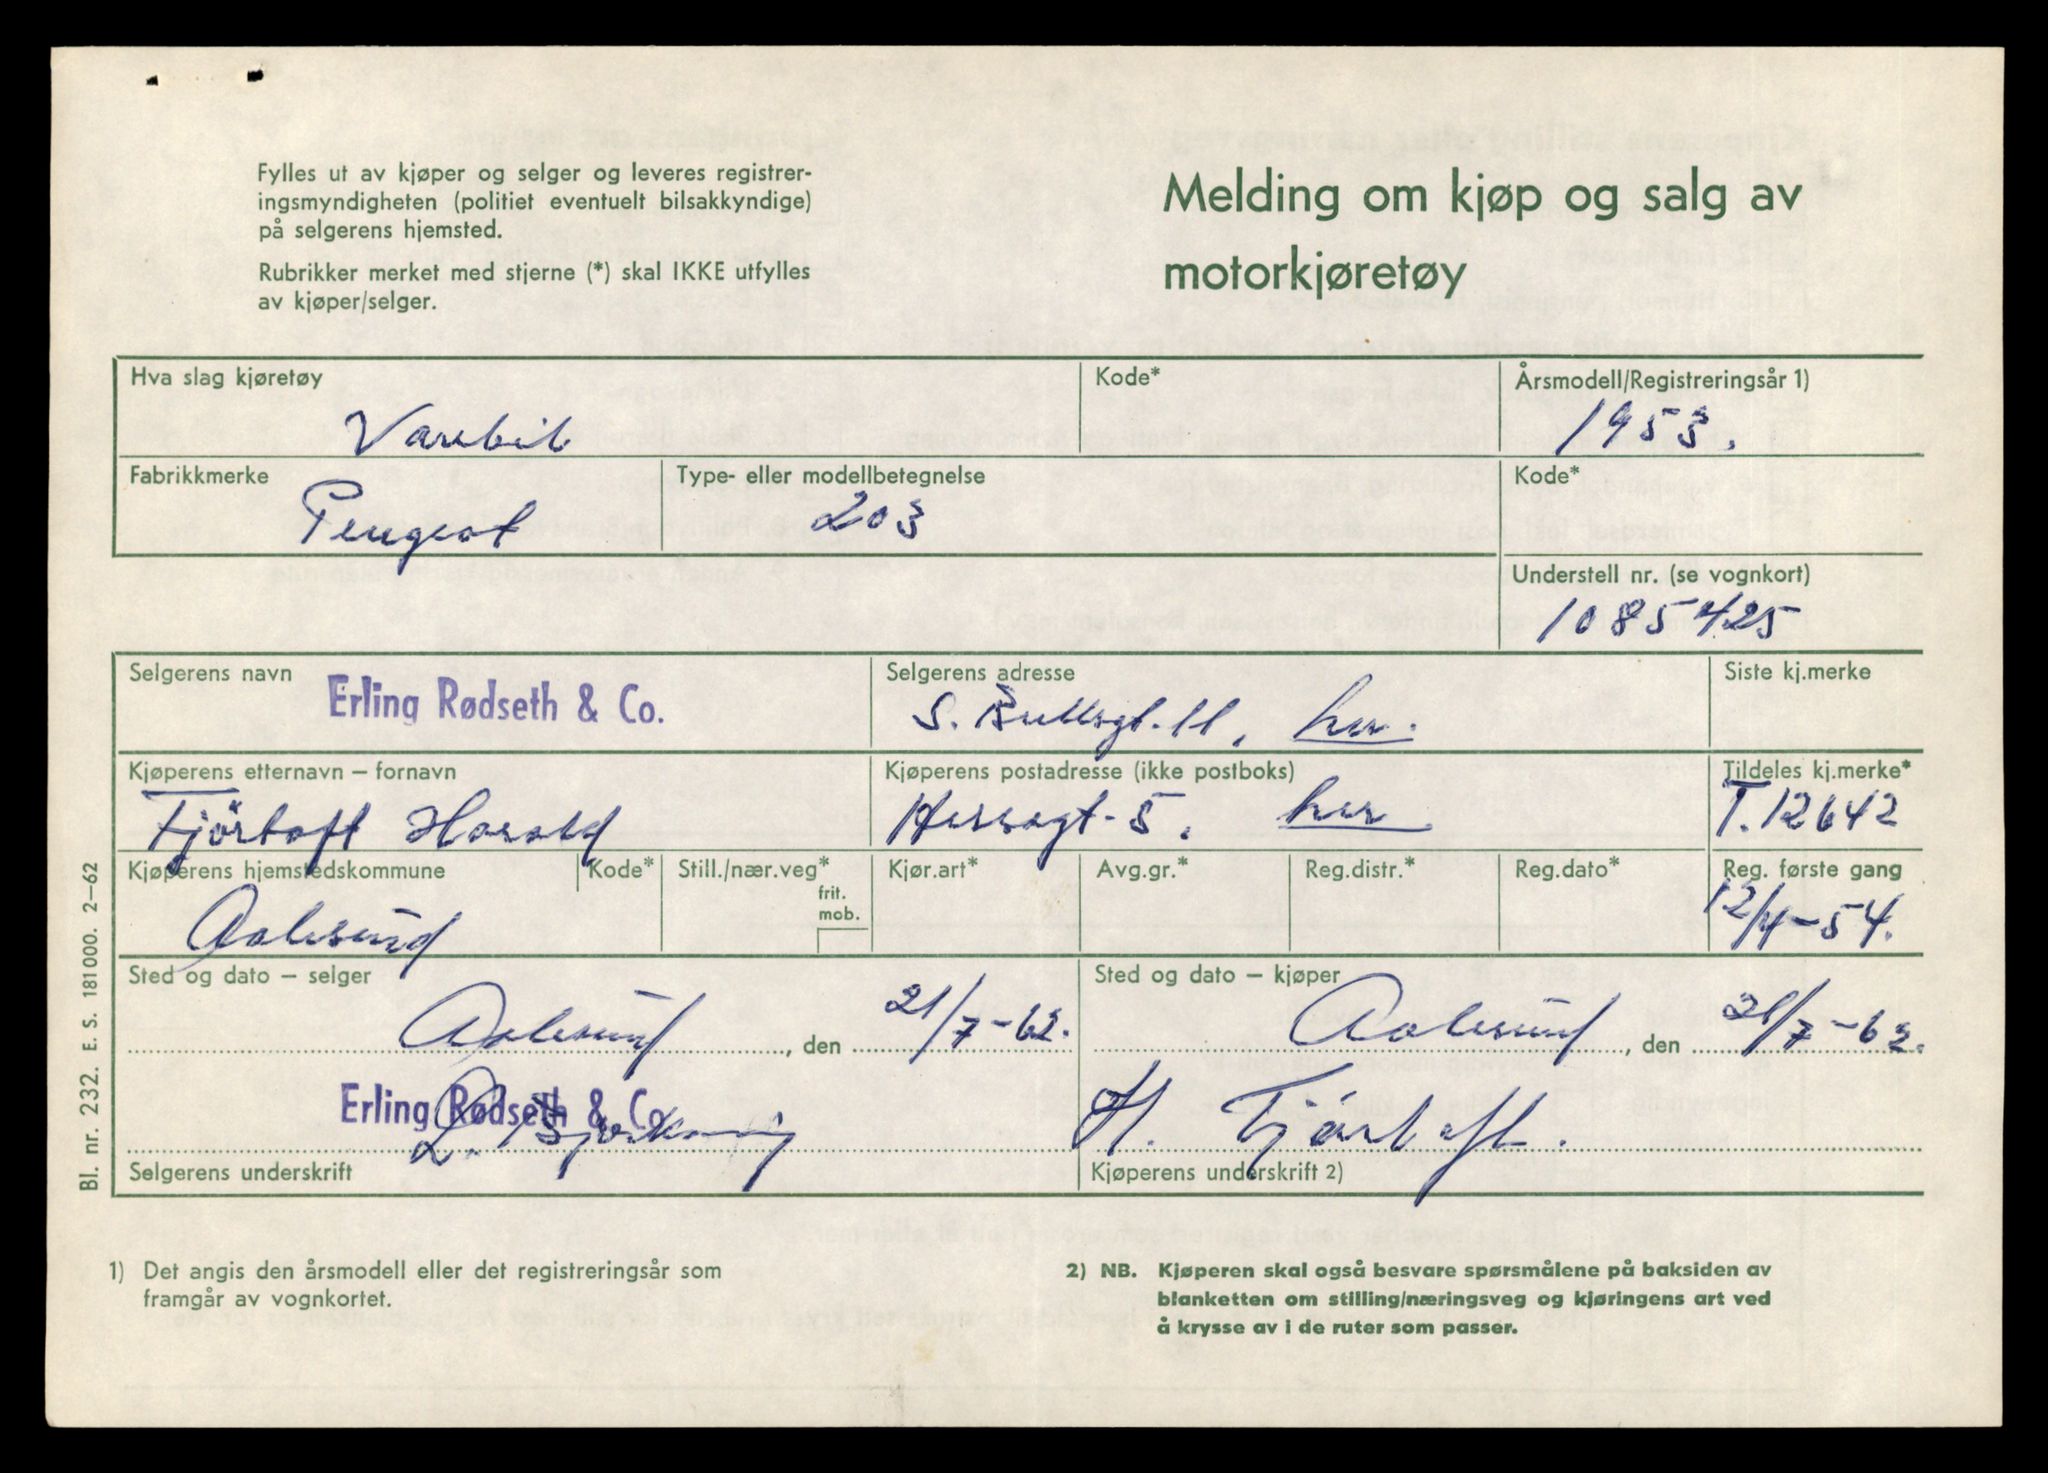 Fylles ut av kjøper og selger og leveres registrer-
ingsmyndigheten (politiet eventuelt bilsakkyndige)
på selgerens hjemsted.
Rubrikker merket med stjerne (*) skal IKKE utfylles
av kjøper/selger.
Melding om kjøp og salg av
motorkjøretøy
Hva slag kjøretøy
Varebil
Kode*
Årsmodell/Registreringsår 1)
1953.
Fabrikkmerke
Peugeot
Type- eller modellbetegnelse
203
Kode*
Understell nr. (se vognkort)
1085425
Selgerens navn
Erling Rødseth & Co.
Selgerens adresse
S. Bullsgt. 11, her.
Siste kj.merke
Kjøperens etternavn – fornavn
Fjörtoft Harald
Kjøperens postadresse (ikke postboks)
5, her
Tildeles kj.merke*
T.12642
Kjøperens hjemstedskommune
Aalesund
Kode*
Still./nær.veg*
frit.
mob.
Kjør.art*
Avg.gr.*
Reg.distr.*
Reg.dato*
Reg. første gang
12/4-54.
Sted og dato – selger
Aalesund, den 21/7-62.
Sted og dato – kjøper
Aalesund, den 21/7-62.
Erling Rødseth & Co.
H. Fjørtoft.
Selgerens underskrift
Kjøperens underskrift 2)
Bl. nr. 232. E. S. 181000. 2–62
1) Det angis den årsmodell eller det registreringsår som
framgår av vognkortet.
2) NB. Kjøperen skal også besvare spørsmålene på baksiden av
blanketten om stilling/næringsveg og kjøringens art ved
å krysse av i de ruter som passer.